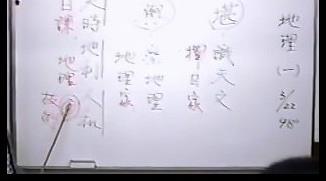 地理(一)
3/22
98°
堪
識天文
擇日家
輿
察地理
地理家
天時
日課
地利
地理
人和